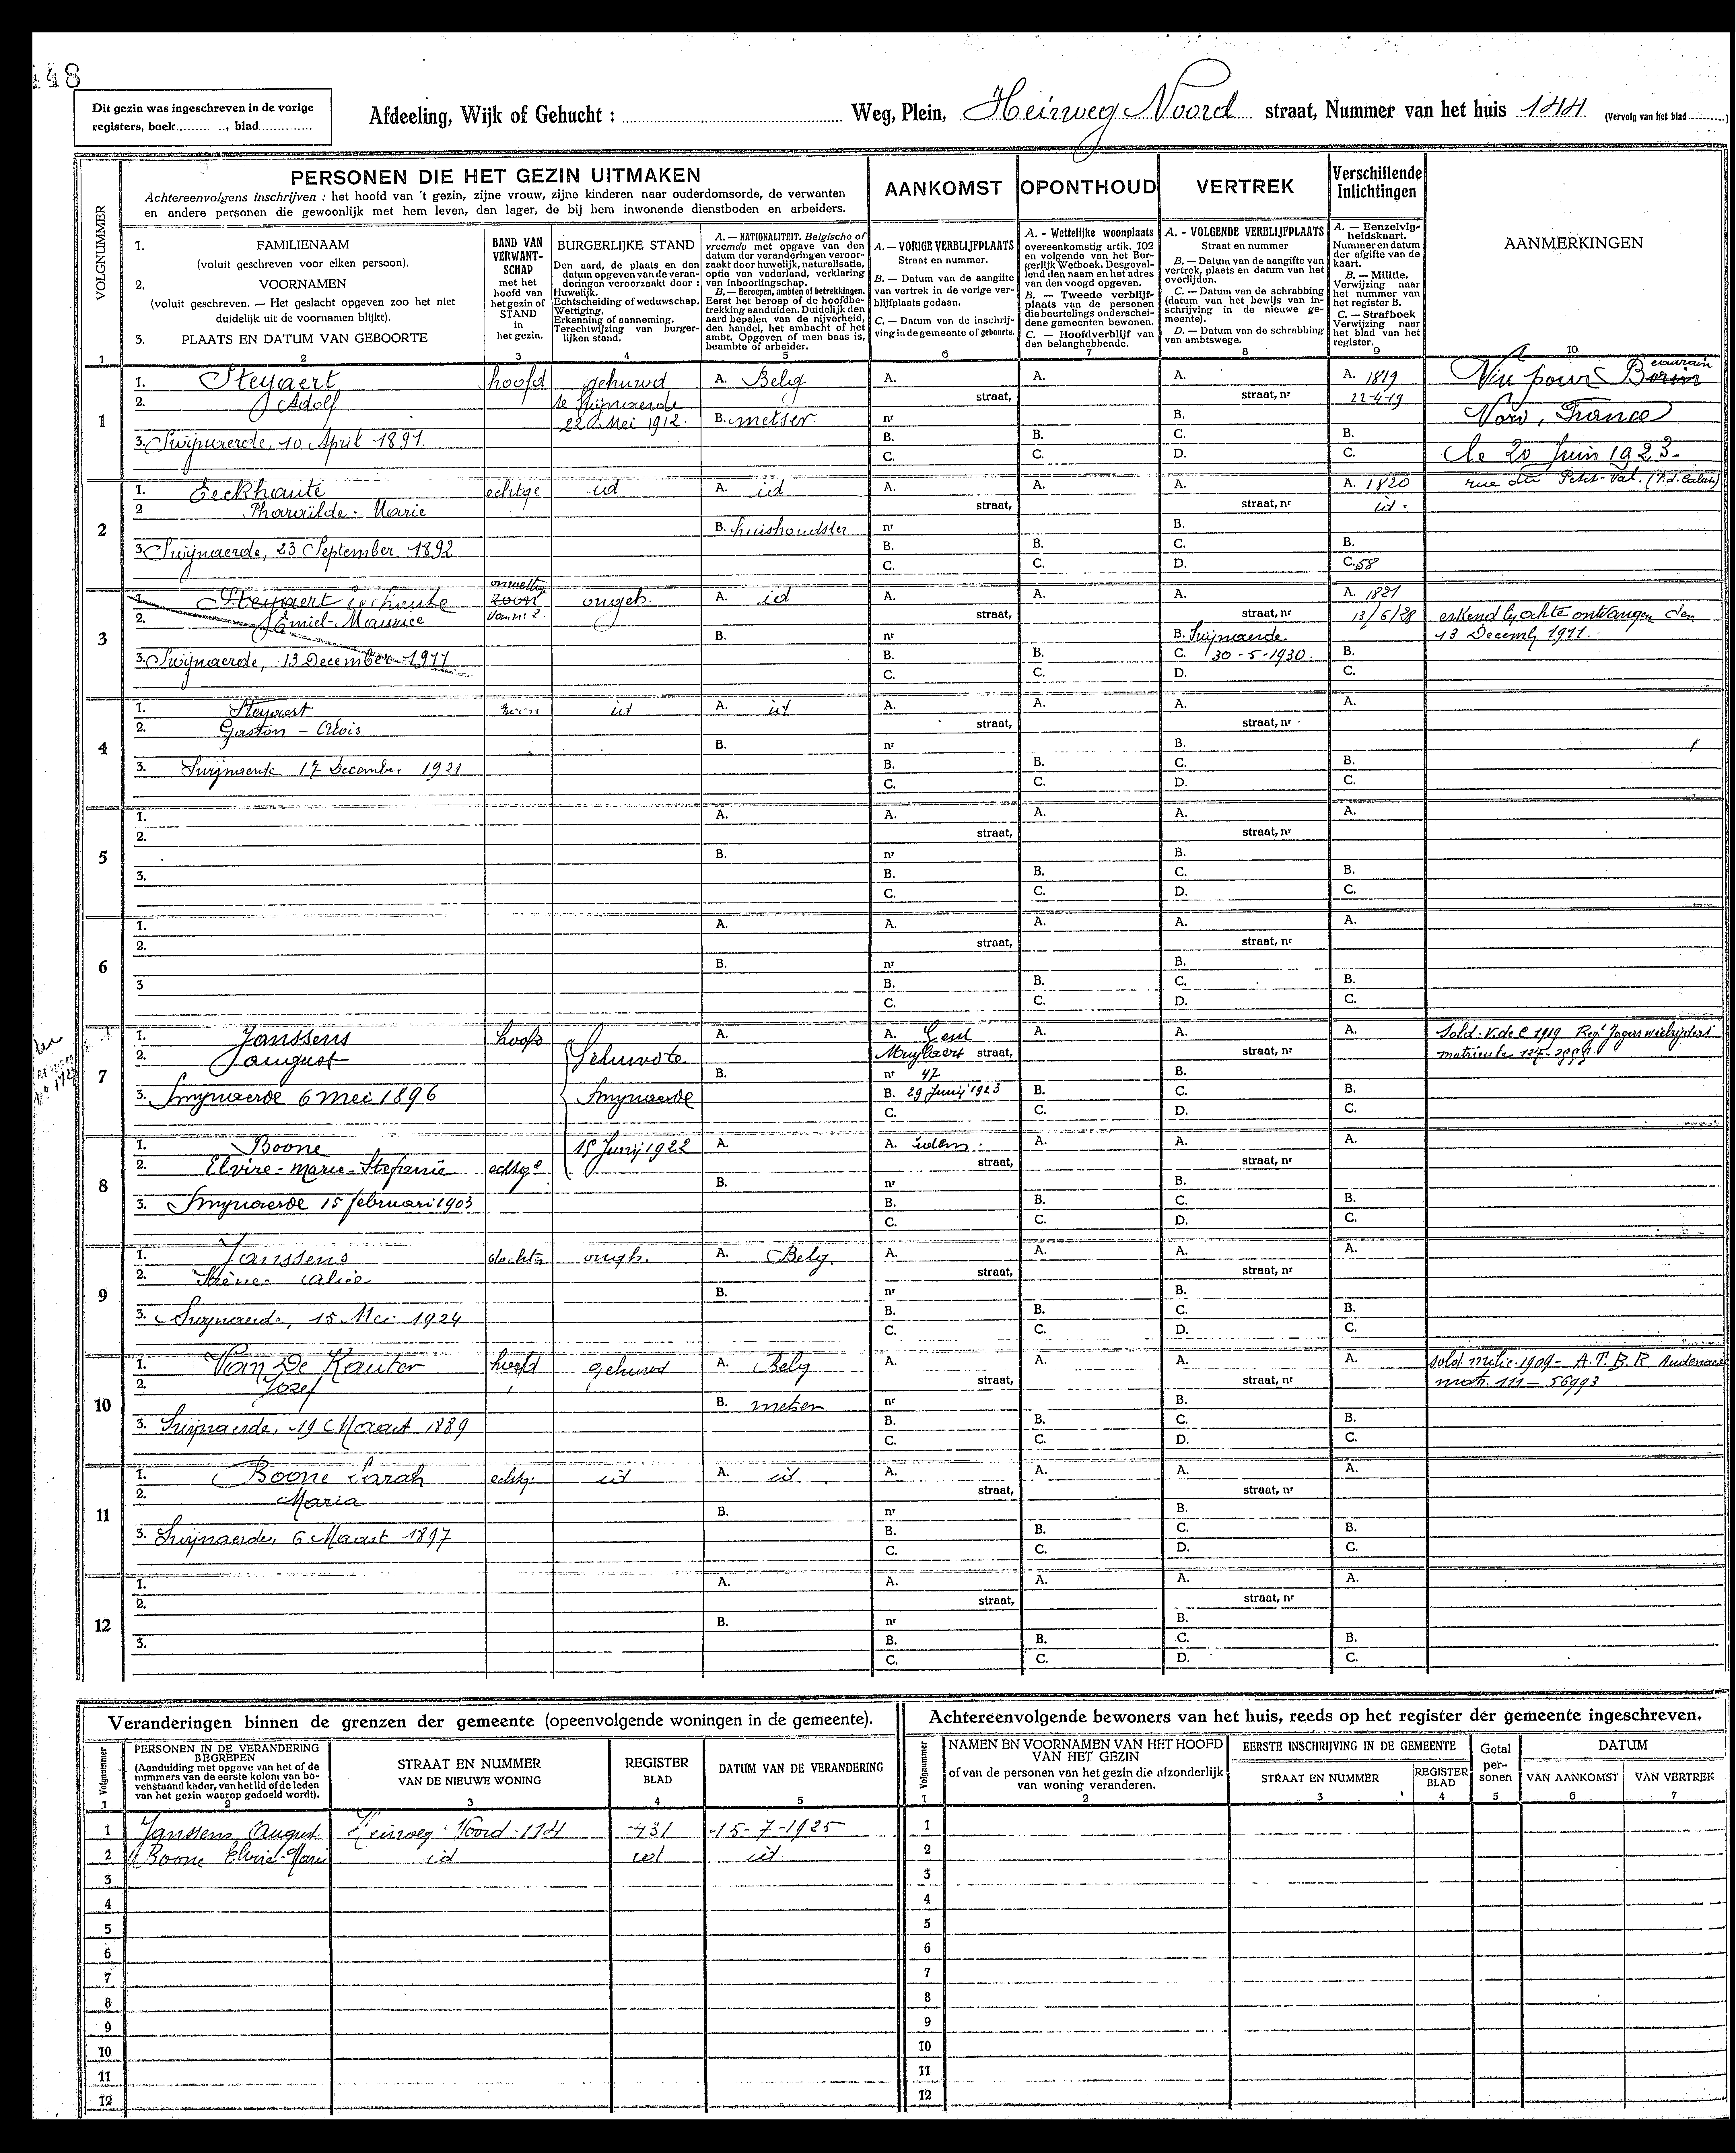 148
Dit gezin was ingeschreven in de vorige
registers, boek........ .., blad.............
Afdeeling, Wijk of Gehucht : ........ Weg, Plein, Heirweg Noord straat, Nummer van het huis 144 (Vervolg van het blad ..........)
VOLGNUMMER
PERSONEN DIE HET GEZIN UITMAKEN
Achtereenvolgens inschrijven : het hoofd van 't gezin, zijne vrouw, zijne kinderen naar ouderdomsorde, de verwanten
en andere personen die gewoonlijk met hem leven, dan lager, de bij hem inwonende dienstboden en arbeiders.
AANKOMST
OPONTHOUD
VERTREK
Verschillende
Inlichtingen
AANMERKINGEN
1. FAMILIENAAM
(voluit geschreven voor elken persoon).
2. VOORNAMEN
(voluit geschreven. — Het geslacht opgeven zoo het niet
duidelijk uit de voornamen blijkt).
3. PLAATS EN DATUM VAN GEBOORTE
BAND VAN
VERWANT-
SCHAP
met het
hoofd van
het gezin of
STAND
in
het gezin.
BURGERLIJKE STAND
Den aard, de plaats en den
datum opgeven van de veran-
deringen veroorzaakt door :
Huwelijk.
Echtscheiding of weduwschap.
Wettiging.
Erkenning of aanneming.
Terechtwijzing van burger-
lijken stand.
A. — NATIONALITEIT. Belgische of
vreemde met opgave van den
datum der veranderingen veroor-
zaakt door huwelijk, naturalisatie,
optie van vaderland, verklaring
van inboorlingschap.
B. — Beroepen, ambten of betrekkingen.
Eerst het beroep of de hoofdbe-
trekking aanduiden. Duidelijk den
aard bepalen van de nijverheid,
den handel, het ambacht of het
ambt. Opgeven of men baas is,
beambte of arbeider.
A. — VORIGE VERBLIJFPLAATS
Straat en nummer.
B. — Datum van de aangifte
van vertrek in de vorige ver-
blijfplaats gedaan.
C. — Datum van de inschrij-
ving in de gemeente of geboorte.
A. - Wettelijke woonplaats
overeenkomstig artik. 102
en volgende van het Bur-
gerlijk Wetboek. Desgeval-
lend den naam en het adres
van den voogd opgeven.
B. — Tweede verblijf-
plaats van de personen
die beurtelings onderschei-
dene gemeenten bewonen.
C. — Hoofdverblijf van
den belanghebbende.
A. - VOLGENDE VERBLIJFPLAATS
Straat en nummer
B. — Datum van de aangifte van
vertrek, plaats en datum van het
overlijden.
C. — Datum van de schrabbing
(datum van het bewijs van in-
schrijving in de nieuwe ge-
meente).
D. — Datum van de schrabbing
van ambtswege.
A. — Eenzelvig-
heidskaart.
Nummer en datum
der afgifte van de
kaart.
B. — Militie.
Verwijzing naar
het nummer van
het register B.
C. — Strafboek
Verwijzing naar
het blad van het
register.
1 2 3 4 5 6 7 8 9 10
1
1. Steyaert hoofd gehuwd A. Belg A. A. A. A. 1819 Vu pour
2. Adolf te Swijnaerde straat, straat, nr 22-4-19 Nord, France
22 Mei 1912. B. metser. nr B.
3. Swijnaerde, 10 April 1891. B. B. C. B.
C. C. D. C. le 20 Juin 1923.
2
1. Eeckhaute echtge id A. id A. A. A. A. 1820 rue du Petit-Val. (P.d. Calais)
2 Pharaïlde-Marie straat, straat, nr id.
B. huishoudster nr B.
3. Swijnaerde, 23 September 1892 B. B. C. B.
C. C. D. C. 58
3
onwettig
1. Steyaert Eeckhaute zoon ongeh. A. id A. A. A. A. 1821
2. Emiel-Maurice van n° 2 straat, straat, nr 13/6/28 erkend bij akte ontvangen den
B. nr B. Swijnaerde 13 Decemb 1911.
3. Swijnaerde, 13 December 1911 B. B. C. 30-5-1930. B.
C. C. D. C.
4
1. Steyaert zoon id A. id A. A. A. A.
2. Gaston - Aloïs straat, straat, nr
B. nr B.
3. Swijnaerde 17 December 1921 B. B. C. B.
C. C. D. C.
5
1. A. A. A. A. A.
2. straat, straat, nr
B. nr B.
3. B. B. C. B.
C. C. D. C.
6
1. A. A. A. A. A.
2. straat, straat, nr
B. nr B.
3 B. B. C. B.
C. C. D. C.
7
1. Janssens hoofd A. A. Gent A. A. A. Sold. V. de C 1919 Regt Jagers wielrijders
2. August Gehuwd te straat, straat, nr
B. nr 47 B.
3. Swynaerde 6 Mei 1896 Swynaerde B. 29 Junij 1923 B. C. B.
C. C. D. C.
8
1. Boone 15 Junij 1922 A. A. idem. A. A. A.
2. Elvire-Marie-Stefanie echtge straat, straat, nr
B. nr B.
3. Swynaerde 15 februari 1903 B. B. C. B.
C. C. D. C.
9
1. Janssens dochter ongh. A. Belg. A. A. A. A.
2. Irène - Alice straat, straat, nr
B. nr B.
3. Swynaerde, 15 Mei 1924 B. B. C. B.
C. C. D. C.
10
1. Van De Kauter hoofd gehuwd A. Belg A. A. A. A. sold. milic. 1909 - A.T.B.R Audenaer
2. Jozef straat, straat, nr matr. 111 - 56993
B. metser nr B.
3. Swijnaerde, 19 Maart 1889 B. B. C. B.
C. C. D. C.
11
1. Boone Sarah echtg. id A. id. A. A. A. A.
2. Maria straat, straat, nr
B. nr B.
3. Swijnaerde, 6 Maart 1897 B. B. C. B.
C. C. D. C.
12
1. A. A. A. A. A.
2. straat, straat, nr
B. nr B.
3. B. B. C. B.
C. C. D. C.
Veranderingen binnen de grenzen der gemeente (opeenvolgende woningen in de gemeente).
Volgnummer
PERSONEN IN DE VERANDERING
BEGREPEN
(Aanduiding met opgave van het of de
nummers van de eerste kolom van bo-
venstaand kader, van het lid of de leden
van het gezin waarop gedoeld wordt).
STRAAT EN NUMMER
VAN DE NIEUWE WONING
REGISTER
BLAD
DATUM VAN DE VERANDERING
1 2 3 4 5
1 Janssens August. Heirweg Noord 174 431 15-7-1925
2 Boone Elvire-Marie id id id
3
4
5
6
7
8
9
10
11
12
Achtereenvolgende bewoners van het huis, reeds op het register der gemeente ingeschreven.
Volgnummer
NAMEN EN VOORNAMEN VAN HET HOOFD
VAN HET GEZIN
of van de personen van het gezin die afzonderlijk
van woning veranderen.
EERSTE INSCHRIJVING IN DE GEMEENTE
STRAAT EN NUMMER
REGISTER
BLAD
Getal
per-
sonen
DATUM
VAN AANKOMST
VAN VERTREK
1 2 3 4 5 6 7
1
2
3
4
5
6
7
8
9
10
11
12